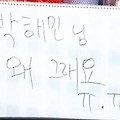 박해민 님
왜 그래요
ㅠ.ㅠ